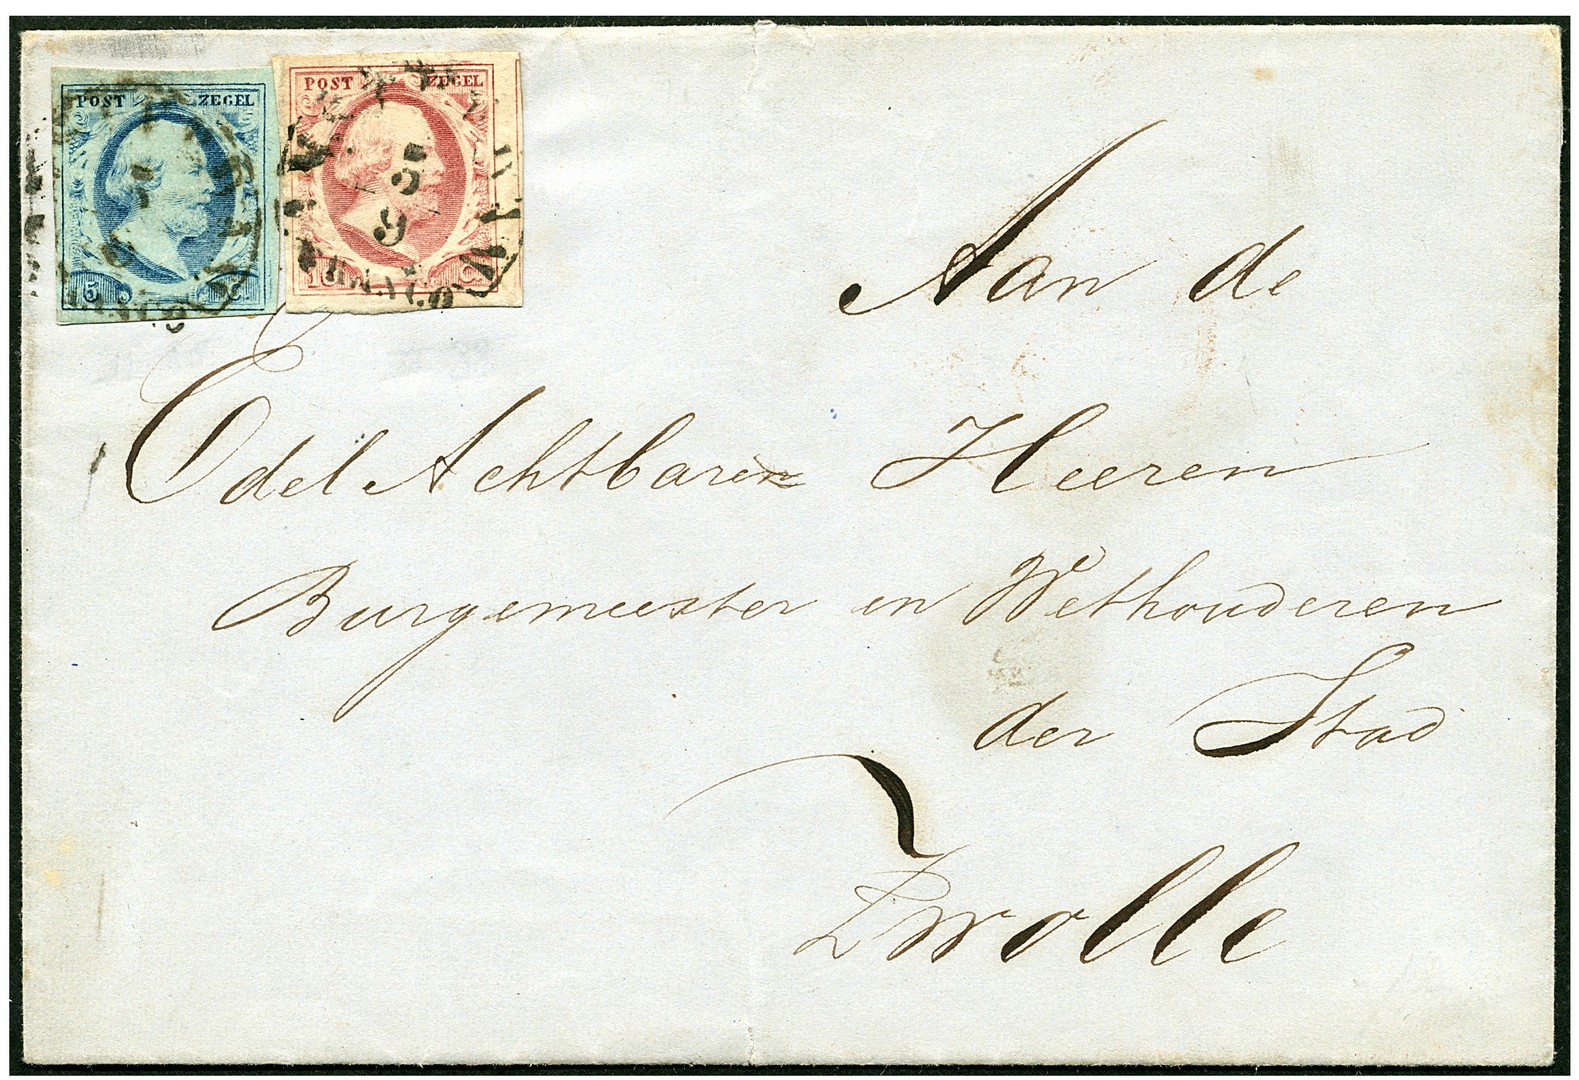 POST ZEGEL
POST ZEGEL
5 C.
10 C.
FRANCO
Aan de
Edel Achtbaren Heeren
Burgemeester en Wethouderen
der Stad
Zwolle